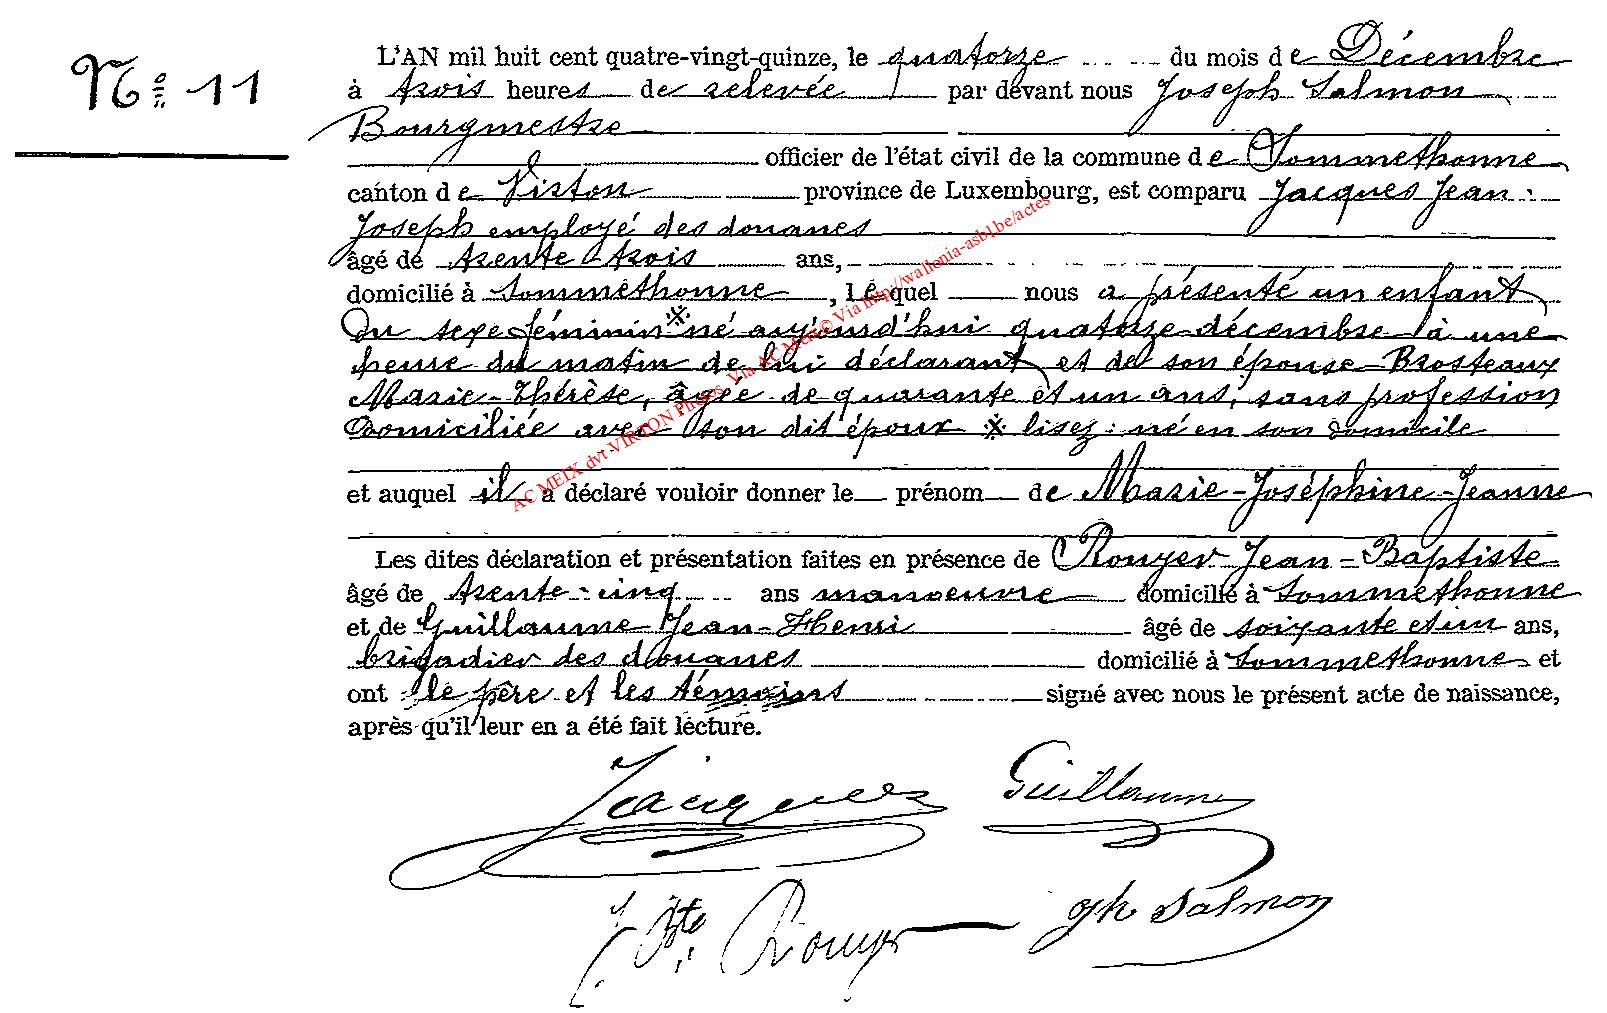 No 11
L'AN mil huit cent quatre-vingt-quinze, le quatorze du mois de Décembre
à trois heures de relevée par devant nous Joseph Salmon
Bourgmestre
officier de l'état civil de la commune de Sommethonne
canton de Virton province de Luxembourg, est comparu Jacques Jean-
Joseph employé des douanes
âgé de trente-trois ans,
domicilié à Sommethonne, lequel nous a présenté un enfant
du sexe féminin※ né aujourd'hui quatorze décembre à une
heure du matin de lui déclarant et de son épouse Brosteaux
Marie-Thérèse, âgée de quarante et un ans, sans profession
Domiciliée avec son dit époux ※ lisez : né en son domicile
et auquel il a déclaré vouloir donner le prénom de Marie-Joséphine-Jeanne
Les dites déclaration et présentation faites en présence de Rouyer Jean-Baptiste
âgé de trente-cinq ans manoeuvre domicilié à Sommethonne
et de Guillaume Jean-Henri âgé de soixante et un ans,
brigadier des douanes domicilié à Sommethonne et
ont le père et les témoins signé avec nous le présent acte de naissance,
après qu'il leur en a été fait lecture.
Jacques Guillaume
J Bte Rouyer Jph Salmon
AC MEIX dvt VIRTON Photos Via AC Meix © Via http://wallonia-asbl.be/actes